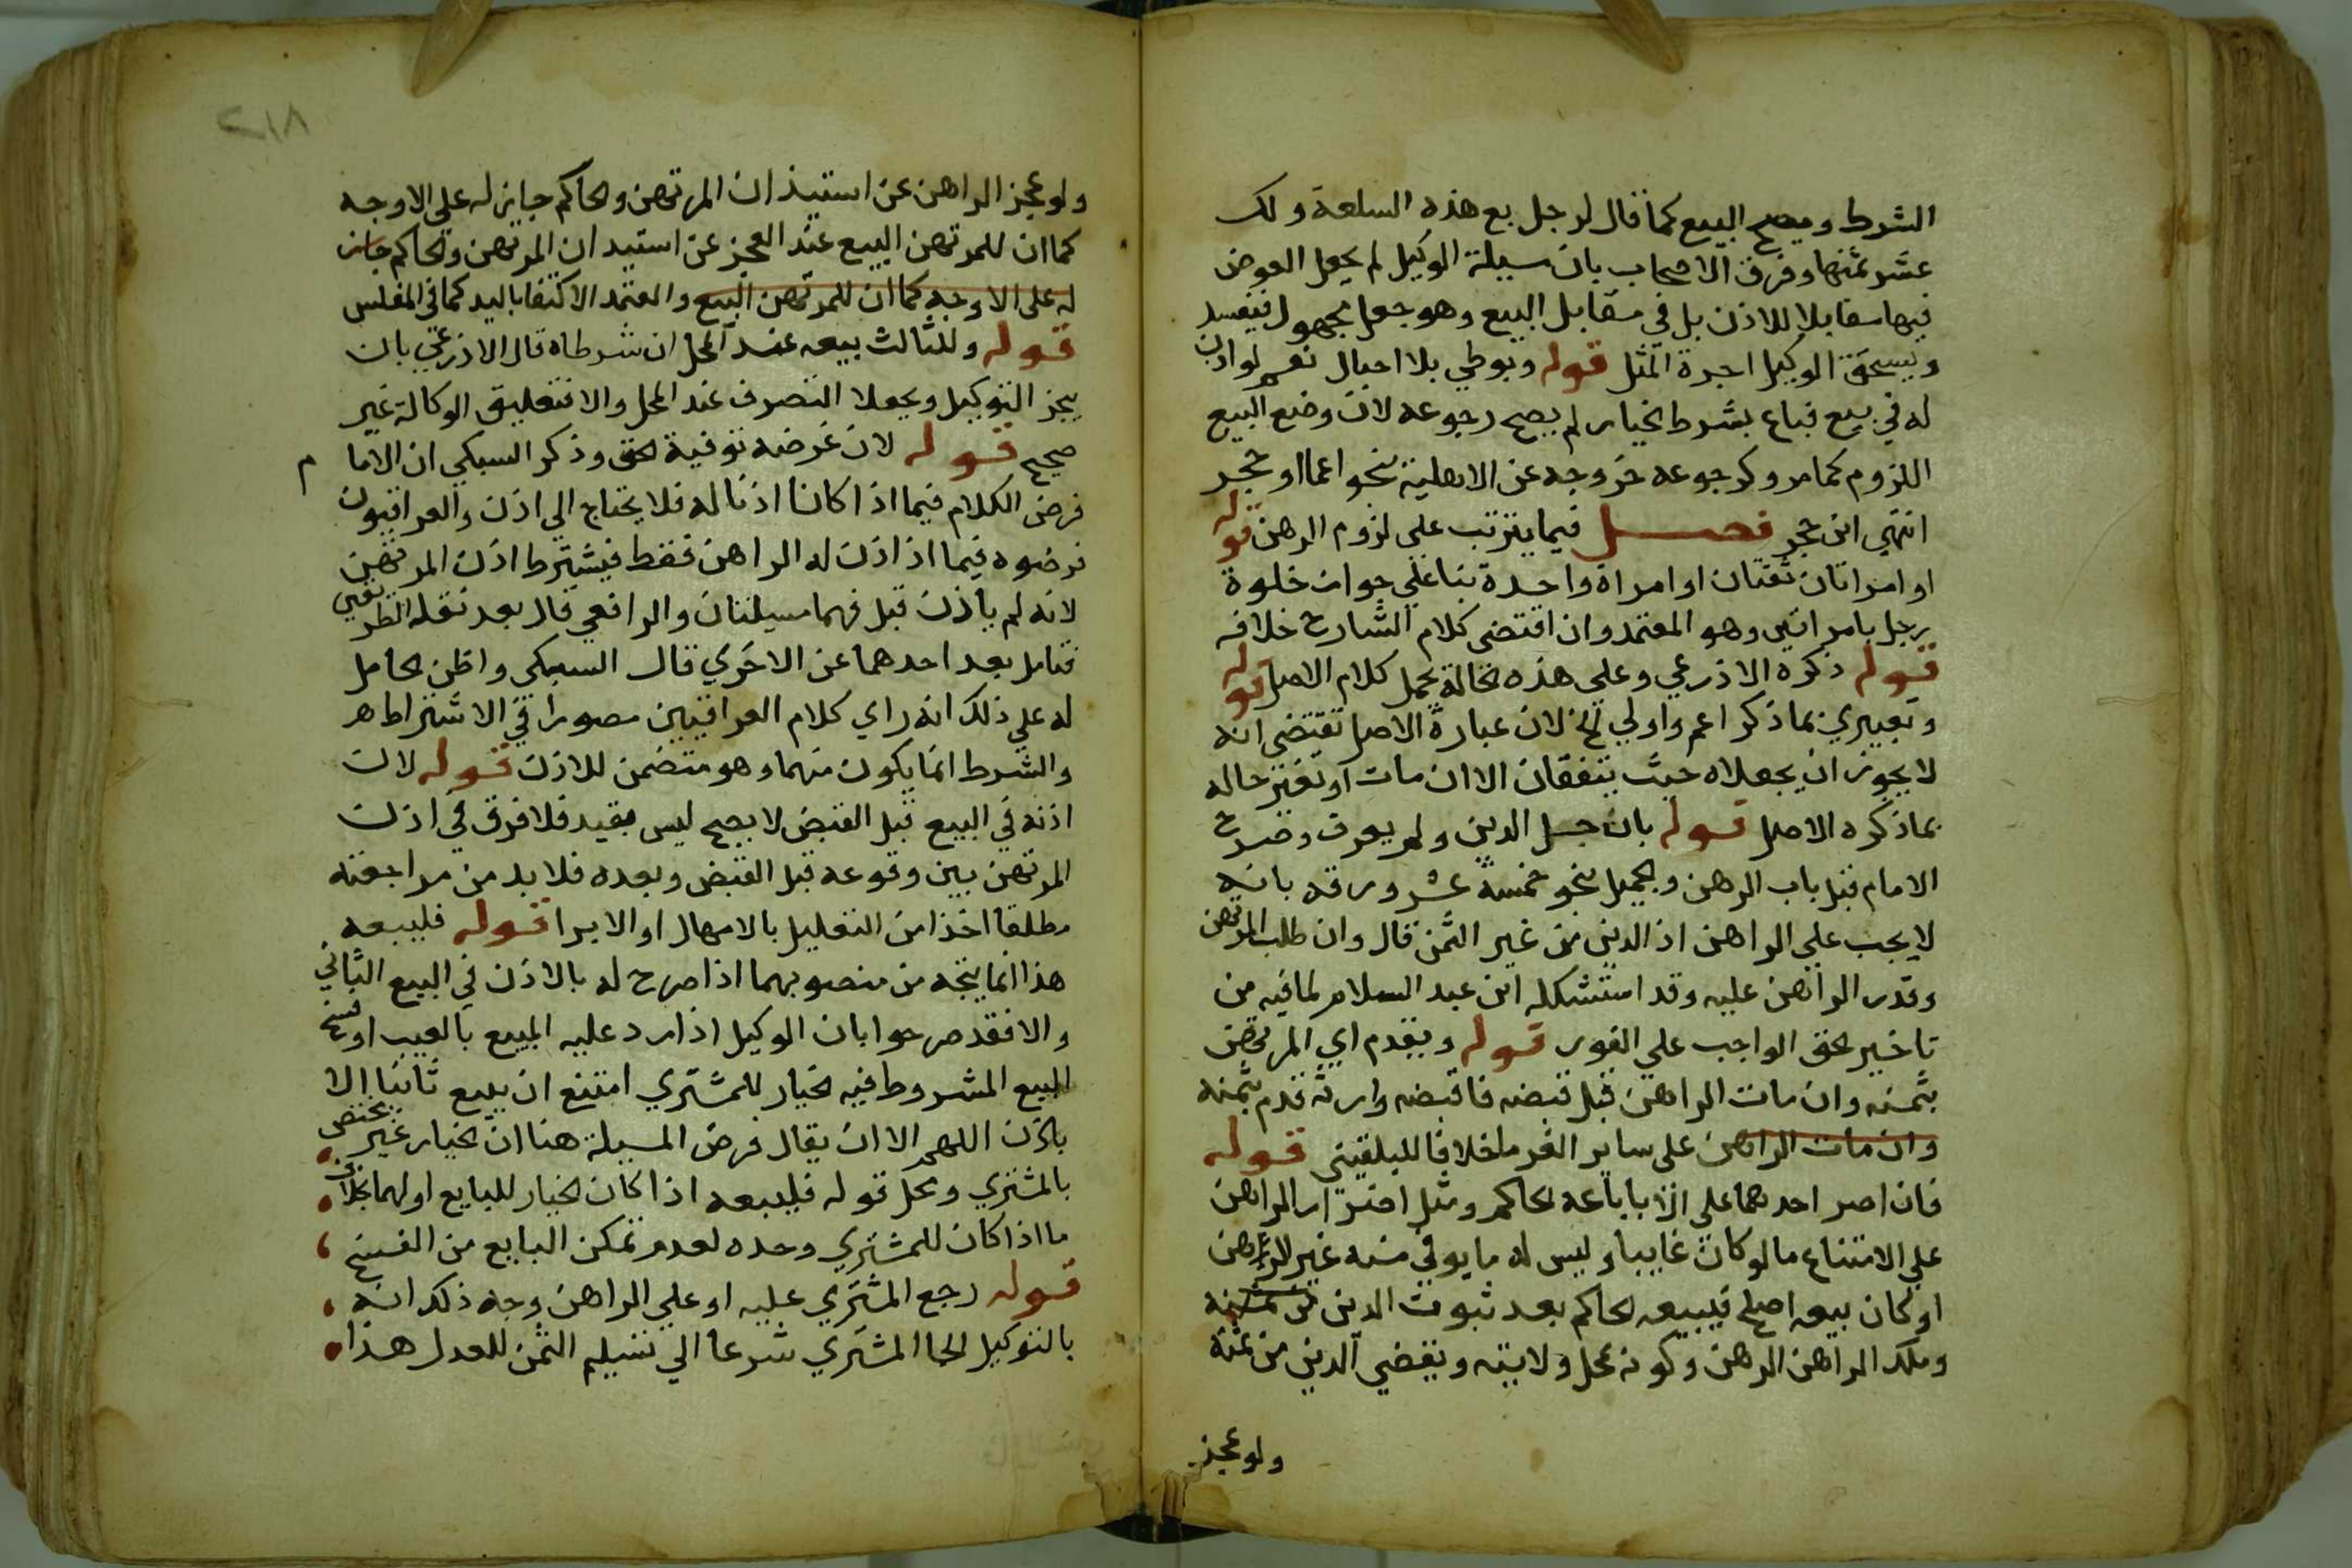 الشرط ويصح البيع كما قال لرجل بع هذه السلعة ولك
عشر ثمنها وفرق الاصحاب بان سيلة الوكيل لم يجعل العوض
فيها مقابلا للاذن بل في مقابل البيع وهو جعل مجهول فيفسد
ويستحق الوكيل اجرة المثل قوله وبوطي بلا احبال نعم لو اذن
له في بيع فباع بشرط الخيار لم يصح رجوعه لان وضع البيع
اللزوم كما مر وكرجوعه خروجه عن الاهلية بنحو اغما او حجر
انتهي ابن حجر فصل فيما يترتب علي لزوم الرهن قوله
او امراتان ثقتان او امراة واحدة بنا علي جواز خلوة
رجل بامراتين وهو المعتمد وان اقتضى كلام الشارح خلافه
قوله ذكره الاذرعي وعلي هذه الحالة يحمل كلام الاصل قوله
وتعبيري بما ذكر اعم واولي الخ لان عبارة الاصل تقتضي انه
لا يجوز ان يجعلاه حيث يتفقان الا ان مات او تغير حاله
بما ذكره الاصل قوله بان حل الدين ولم يعرف وصرح
الامام قبل باب الرهن والحميل بنحو خمسة عشر ورقه بانه
لا يجب علي الراهن اذ الدين من غير الثمن قال وان طلب المرتهن
وقدر الراهن عليه وقد استشكله ابن عبد السلام لما فيه من
تاخير الحق الواجب علي الفور قوله ويقدم اي المرتهن
بثمنه وان مات الراهن قبل قبضه فاقبضه وارثه قدم بثمنه
وان مات الراهن على ساير الغرما خلافا للبلقيني قوله
فان اصر احدهما على الابا باعه الحاكم ومثل اصرار الراهن
علي الامتناع ما لو كان غايبا وليس له ما يوفي منه غير الرهن
او كان بيعه اصلح فيبيعه الحاكم بعد ثبوت الدين
وملك الراهن الرهن وكونه بمحل ولايته ويقضي الدين من ثمنه
ولو عجز
٢١٨
ولو عجز الراهن عن استيذان المرتهن والحاكم جاز له علي الاوجه
كما ان للمرتهن البيع عند العجز عن استيدان المرتهن والحاكم جاز
له على الاوجه كما ان للمرتهن البيع والمعتمد الاكتفا باليد كما في المفلس
قوله وللثالث بيعه عند المحل ان شرطاه قال الاذرعي بان
ينجز التوكيل ويجعلا التصرف عند المحل والا فتعليق الوكالة غير
صحيح قوله لان غرضه توفية الحق وذكر السبكي ان الاما م
فرض الكلام فيما اذا كانا اذنا له فلا يحتاج الي اذن والعراقيون
فرضوه فيما اذا اذن له الراهن فقط فيشترط اذن المرتهن
لانه لم ياذن قبل فهما مسيلتان والرافعي قال بعد نقله الطريقين
فتامل بعد احدهما عن الاخري قال السبكي واظن الحامل
له علي ذلك انه راي كلام العراقيين مصورا في الاشتراط هر
والشرط انما يكون منهما وهو متضمن للاذن قوله لان
اذنه في البيع قبل القبض لا يصح ليس بقيد فلا فرق في اذن
المرتهن بين وقوعه قبل القبض وبعده فلا بد من مراجعته
مطلقا اخذا من التعليل بالامهال او الابرا قوله فليبعه
هذا انما يتجه من منصوبهما اذا صرح له بالاذن في البيع الثاني
والا فقد صرحوا بان الوكيل اذا رد عليه المبيع بالعيب او فسخ
البيع المشروط فيه الخيار للمشتري امتنع ان يبيع ثانيا الا
باذن اللهم الا ان يقال فرض المسيلة هنا ان الخيار غير مختص
بالمشتري ومحل قوله فليبعه اذا كان الخيار للبايع اولهما بخلاف
ما اذا كان للمشتري وحده لعدم تمكن البايع من الفسخ
قوله رجع المشتري عليه او علي الراهن وجه ذلك انه
بالتوكيل الجا المشتري شرعا الي تسليم الثمن للعدل هذا